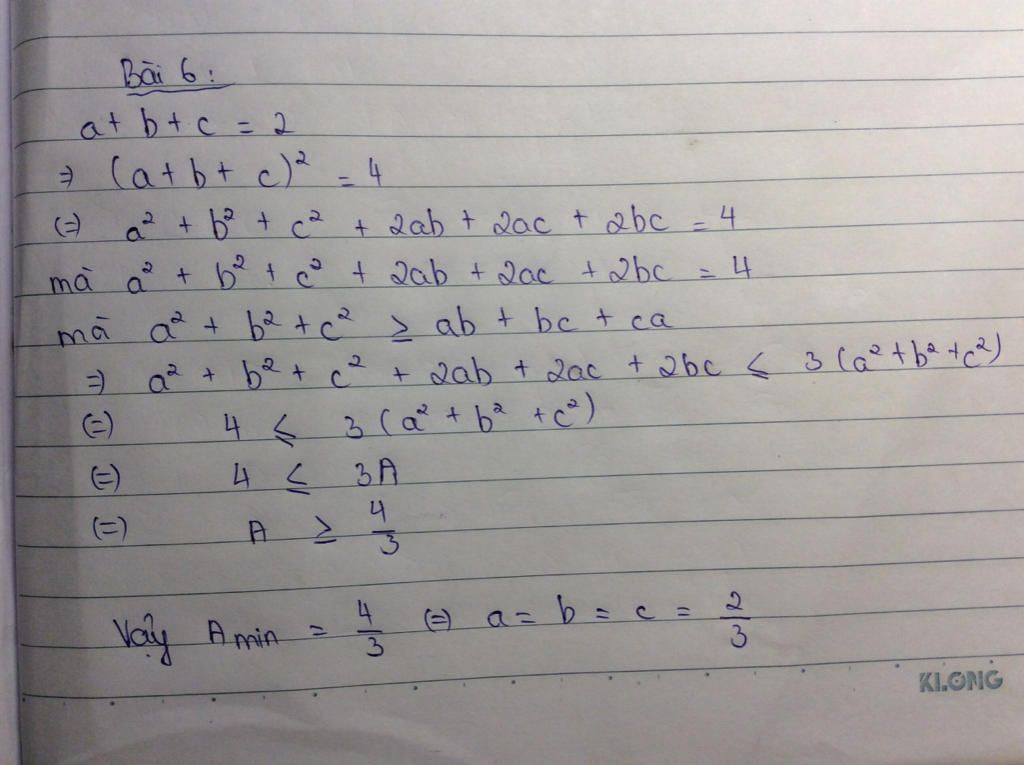 Bài 6:
a + b + c = 2
⇒ (a + b + c)² = 4
(=) a² + b² + c² + 2ab + 2ac + 2bc = 4
mà a² + b² + c² + 2ab + 2ac + 2bc = 4
mà a² + b² + c² ≥ ab + bc + ca
⇒ a² + b² + c² + 2ab + 2ac + 2bc ≤ 3(a² + b² + c²)
(=) 4 ≤ 3(a² + b² + c²)
(=) 4 ≤ 3A
(=) A ≥ 4/3
Vậy Amin = 4/3 (=) a = b = c = 2/3
KLONG